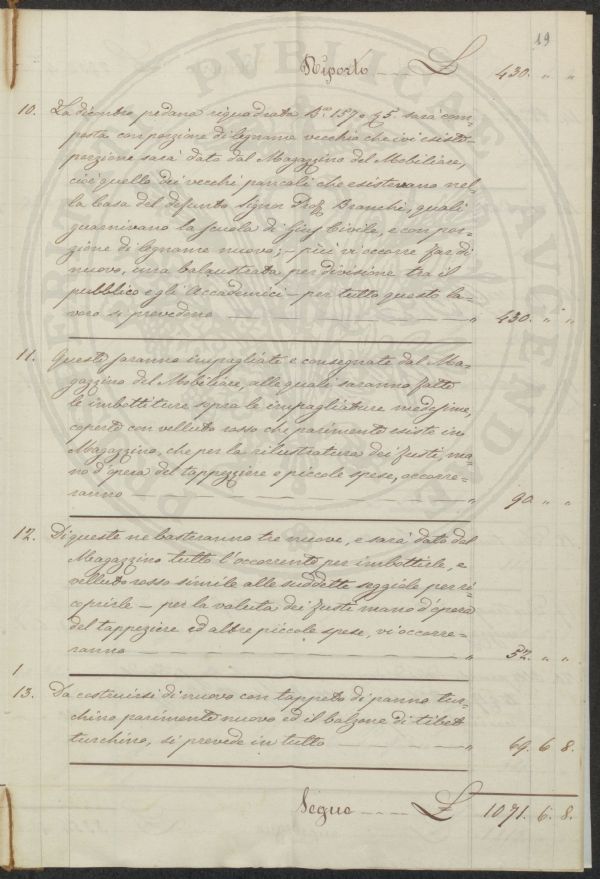 19
Riporto ---- £ 430. „ „
10. La diembre pedana riquadrata Ba. 157 e 25. sarà com=
posta con porzione di legname vecchio che ivi esiste
porzione sarà dato dal Magazzino del Mobiliare,
cioè quello dei vecchi pancali che esistevano nel=
la Casa del defunto Signor Prof. Branchi, quali
guarnivano la Scuola di Gius Civile, e con por=
zione di legname nuovo; – più vi occorre far di
nuovo, una balaustrata per divisione tra il
pubblico e gli Accademici – per tutto questo la=
voro si prevedono ---- „ 430. „ „
11. Queste saranno impagliate e consegnate dal Ma=
gazzino del Mobiliare, alle quali saranno fatte
le imbottiture sopra le impagliature medesime,
coperte con velluto rosso che parimente esiste in
Magazzino, che per la rilustratura dei fusti, ma=
no d'opera del tappezziere e piccole spese, occorre=
ranno ---- „ 90. „ „
12. Di queste ne basteranno tre nuove, e sarà dato dal
Magazzino tutto l'occorrente per imbottirle, e
velluto rosso simile alle suddette seggiole per ri=
coprirle – per la valuta dei fusti mano d'opera
del tappezziere ed altre piccole spese, vi occorre=
ranno ---- „ 52. „ „
13. Da costruirsi di nuovo con tappeto di panno tur=
chino parimente nuovo ed il balzone di tibet
turchino, si prevede in tutto ---- „ 69. 6. 8.
Segue ---- £ 1071. 6. 8.